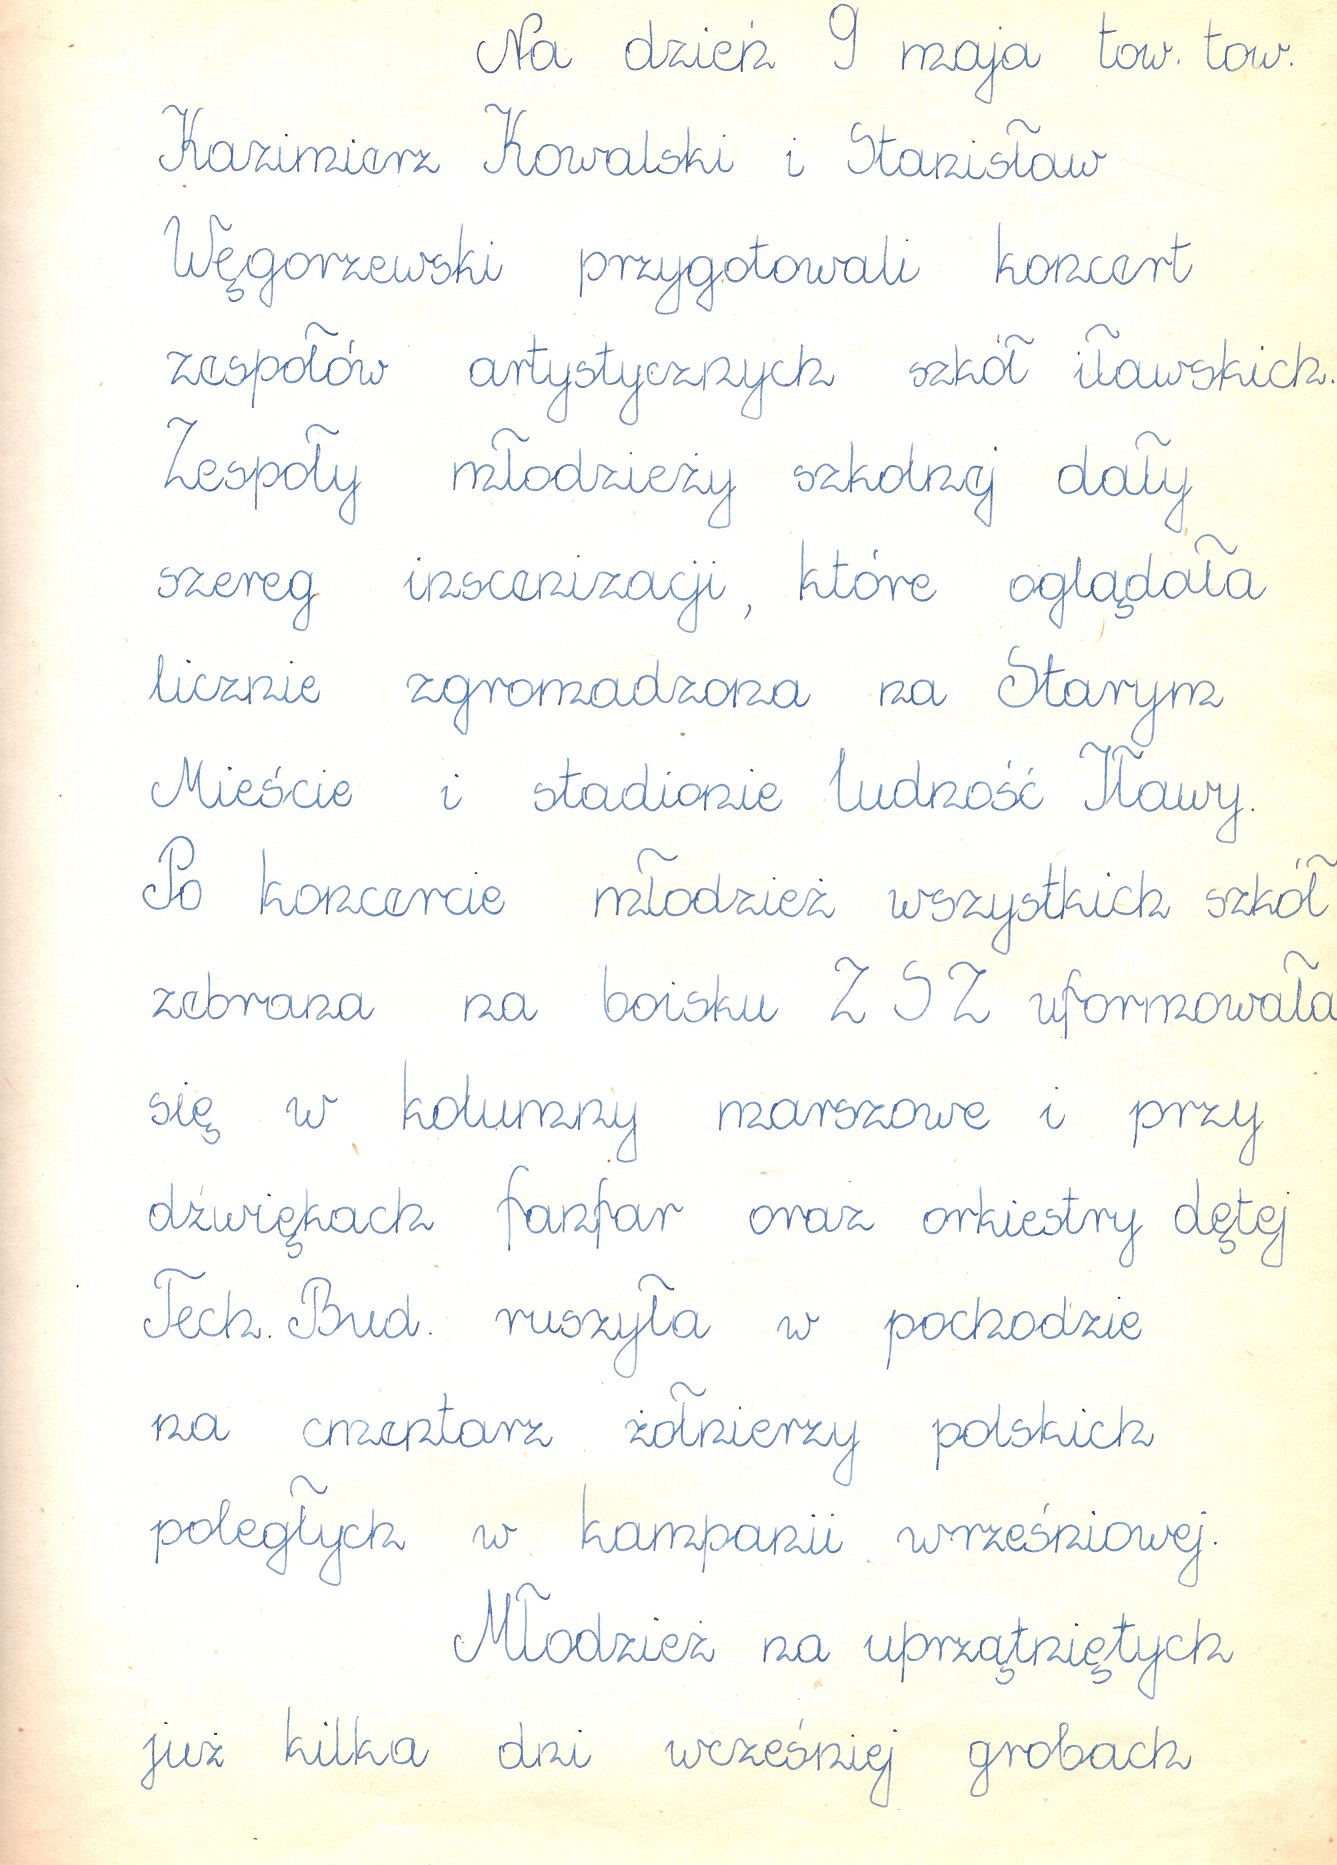 Na dzień 9 maja tow. tow.
Kazimierz Kowalski i Stanisław
Węgorzewski przygotowali koncert
zespołów artystycznych szkół iławskich.
Zespoły młodzieży szkolnej dały
szereg inscenizacji, które oglądała
licznie zgromadzona na Starym
Mieście i stadionie ludność Iławy.
Po koncercie młodzież wszystkich szkół
zebrana na boisku Z S Z uformowała
się w kolumny marszowe i przy
dźwiękach fanfar oraz orkiestry dętej
Tech. Bud. ruszyła w pochodzie
na cmentarz żołnierzy polskich
poległych w kampanii wrześniowej.
Młodzież na uprzątniętych
już kilka dni wcześniej grobach